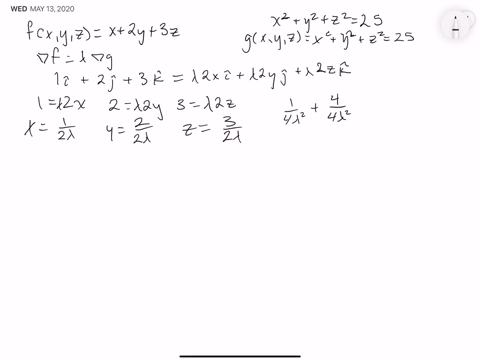 WED MAY 13, 2020
f(x,y,z) = x+2y+3z
x² + y² + z² = 25
g(x,y,z) = x² + y² + z² = 25
∇f = λ ∇g
1î + 2ĵ + 3k̂ = λ2xî + λ2yĵ + λ2zk̂
1 = λ2x 2 = λ2y 3 = λ2z
x = 1/2λ y = 2/2λ z = 3/2λ
1/4λ² + 4/4λ²